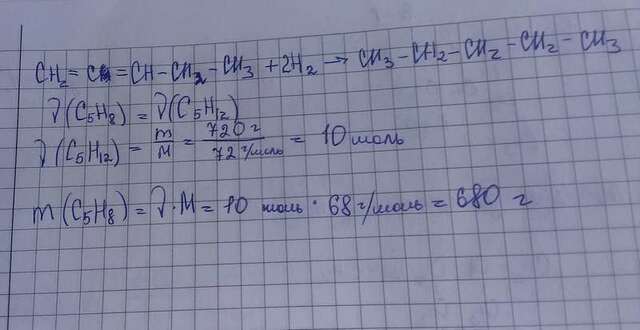 CH₂ = C = CH - CH₂ - CH₃ + 2H₂ → CH₃ - CH₂ - CH₂ - CH₂ - CH₃
ν(C₅H₈) = ν(C₅H₁₂)
ν(C₅H₁₂) = m/M = 720 г/72 г/моль = 10 моль
m(C₅H₈) = ν · M = 10 моль · 68 г/моль = 680 г